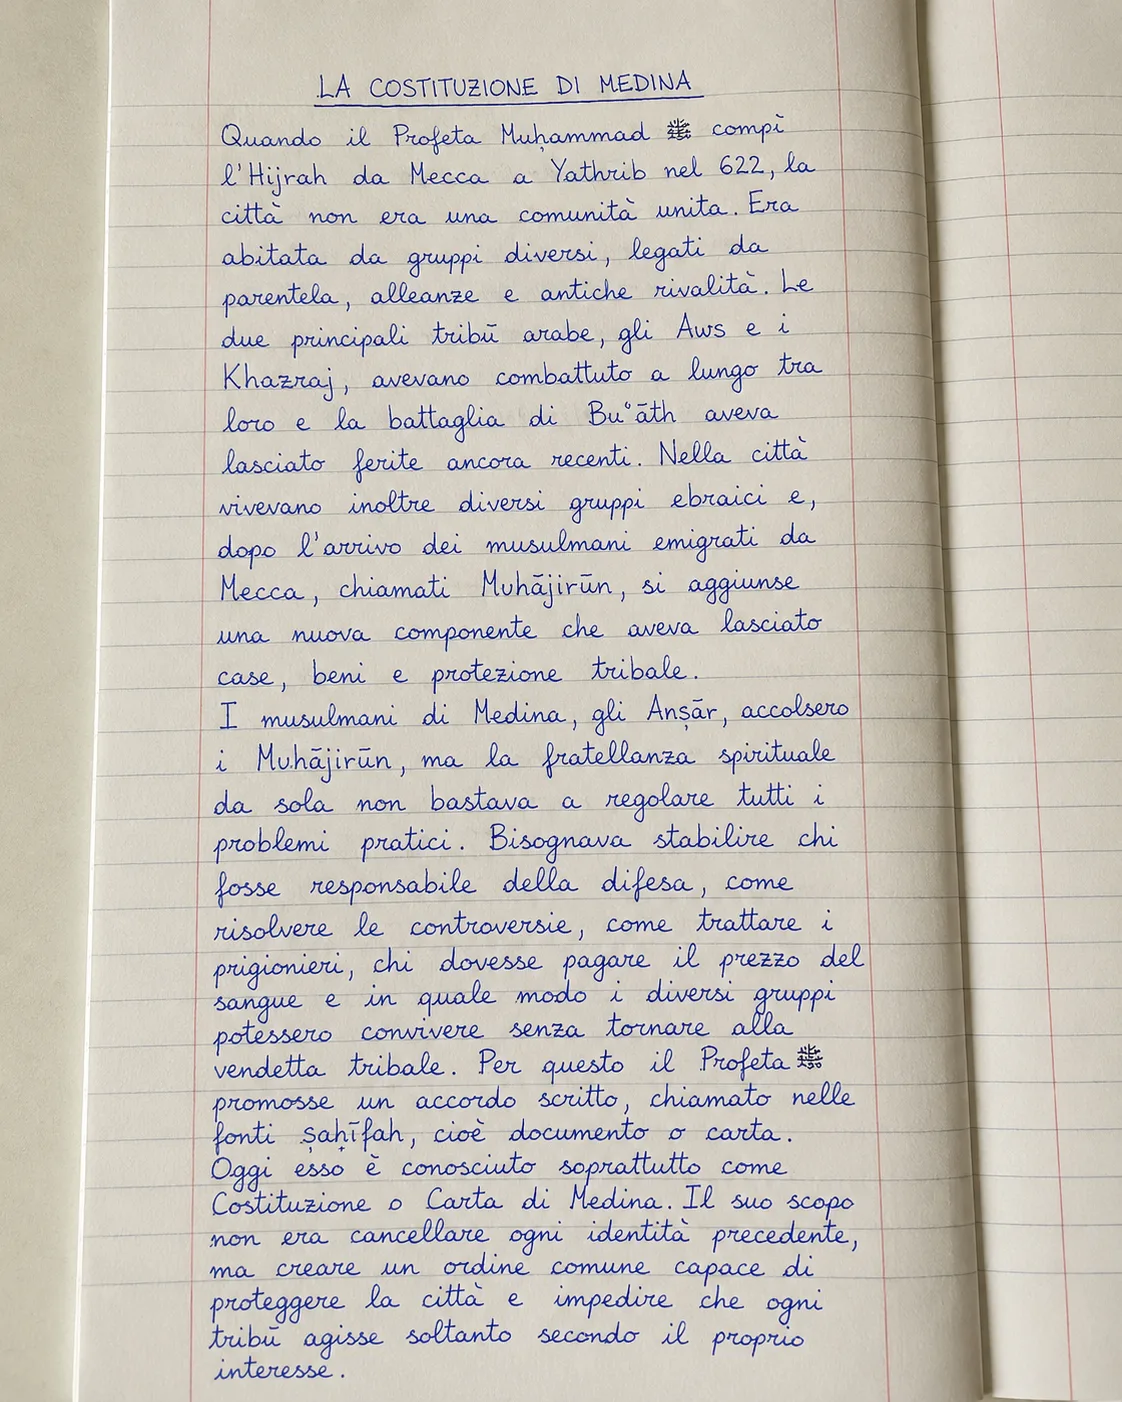 LA COSTITUZIONE DI MEDINA
Quando il Profeta Muḥammad ﷺ compì
l'Hijrah da Mecca a Yathrib nel 622, la
città non era una comunità unita. Era
abitata da gruppi diversi, legati da
parentela, alleanze e antiche rivalità. Le
due principali tribū arabe, gli Aws e i
Khazraj, avevano combattuto a lungo tra
loro e la battaglia di Buʿāth aveva
lasciato ferite ancora recenti. Nella città
vivevano inoltre diversi gruppi ebraici e,
dopo l'arrivo dei musulmani emigrati da
Mecca, chiamati Muhājirūn, si aggiunse
una nuova componente che aveva lasciato
case, beni e protezione tribale.
I musulmani di Medina, gli Anṣār, accolsero
i Muhājirūn, ma la fratellanza spirituale
da sola non bastava a regolare tutti i
problemi pratici. Bisognava stabilire chi
fosse responsabile della difesa, come
risolvere le controversie, come trattare i
prigionieri, chi dovesse pagare il prezzo del
sangue e in quale modo i diversi gruppi
potessero convivere senza tornare alla
vendetta tribale. Per questo il Profeta ﷺ
promosse un accordo scritto, chiamato nelle
fonti ṣaḥīfah, cioè documento o carta.
Oggi esso è conosciuto soprattutto come
Costituzione o Carta di Medina. Il suo scopo
non era cancellare ogni identità precedente,
ma creare un ordine comune capace di
proteggere la città e impedire che ogni
tribū agisse soltanto secondo il proprio
interesse.